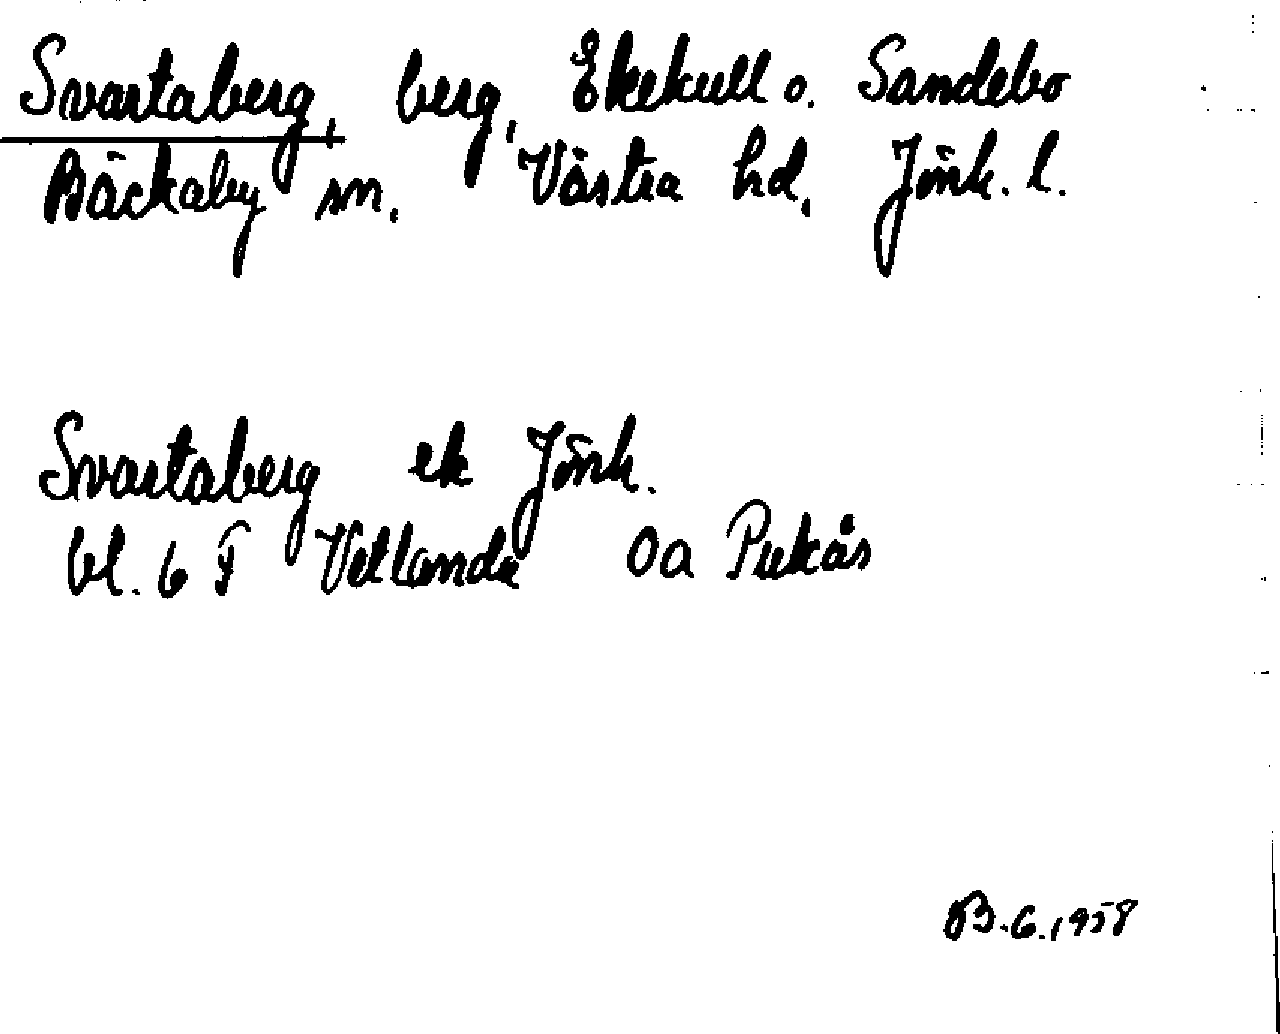 Svartaberg, berg, Ekekull o. Sandebo
Bäckaby sn. Västra hd. Jönk. l.
Svartaberg ek Jönk.
bl. 6 F Vetlanda 0a Pukås
B.G. 1958